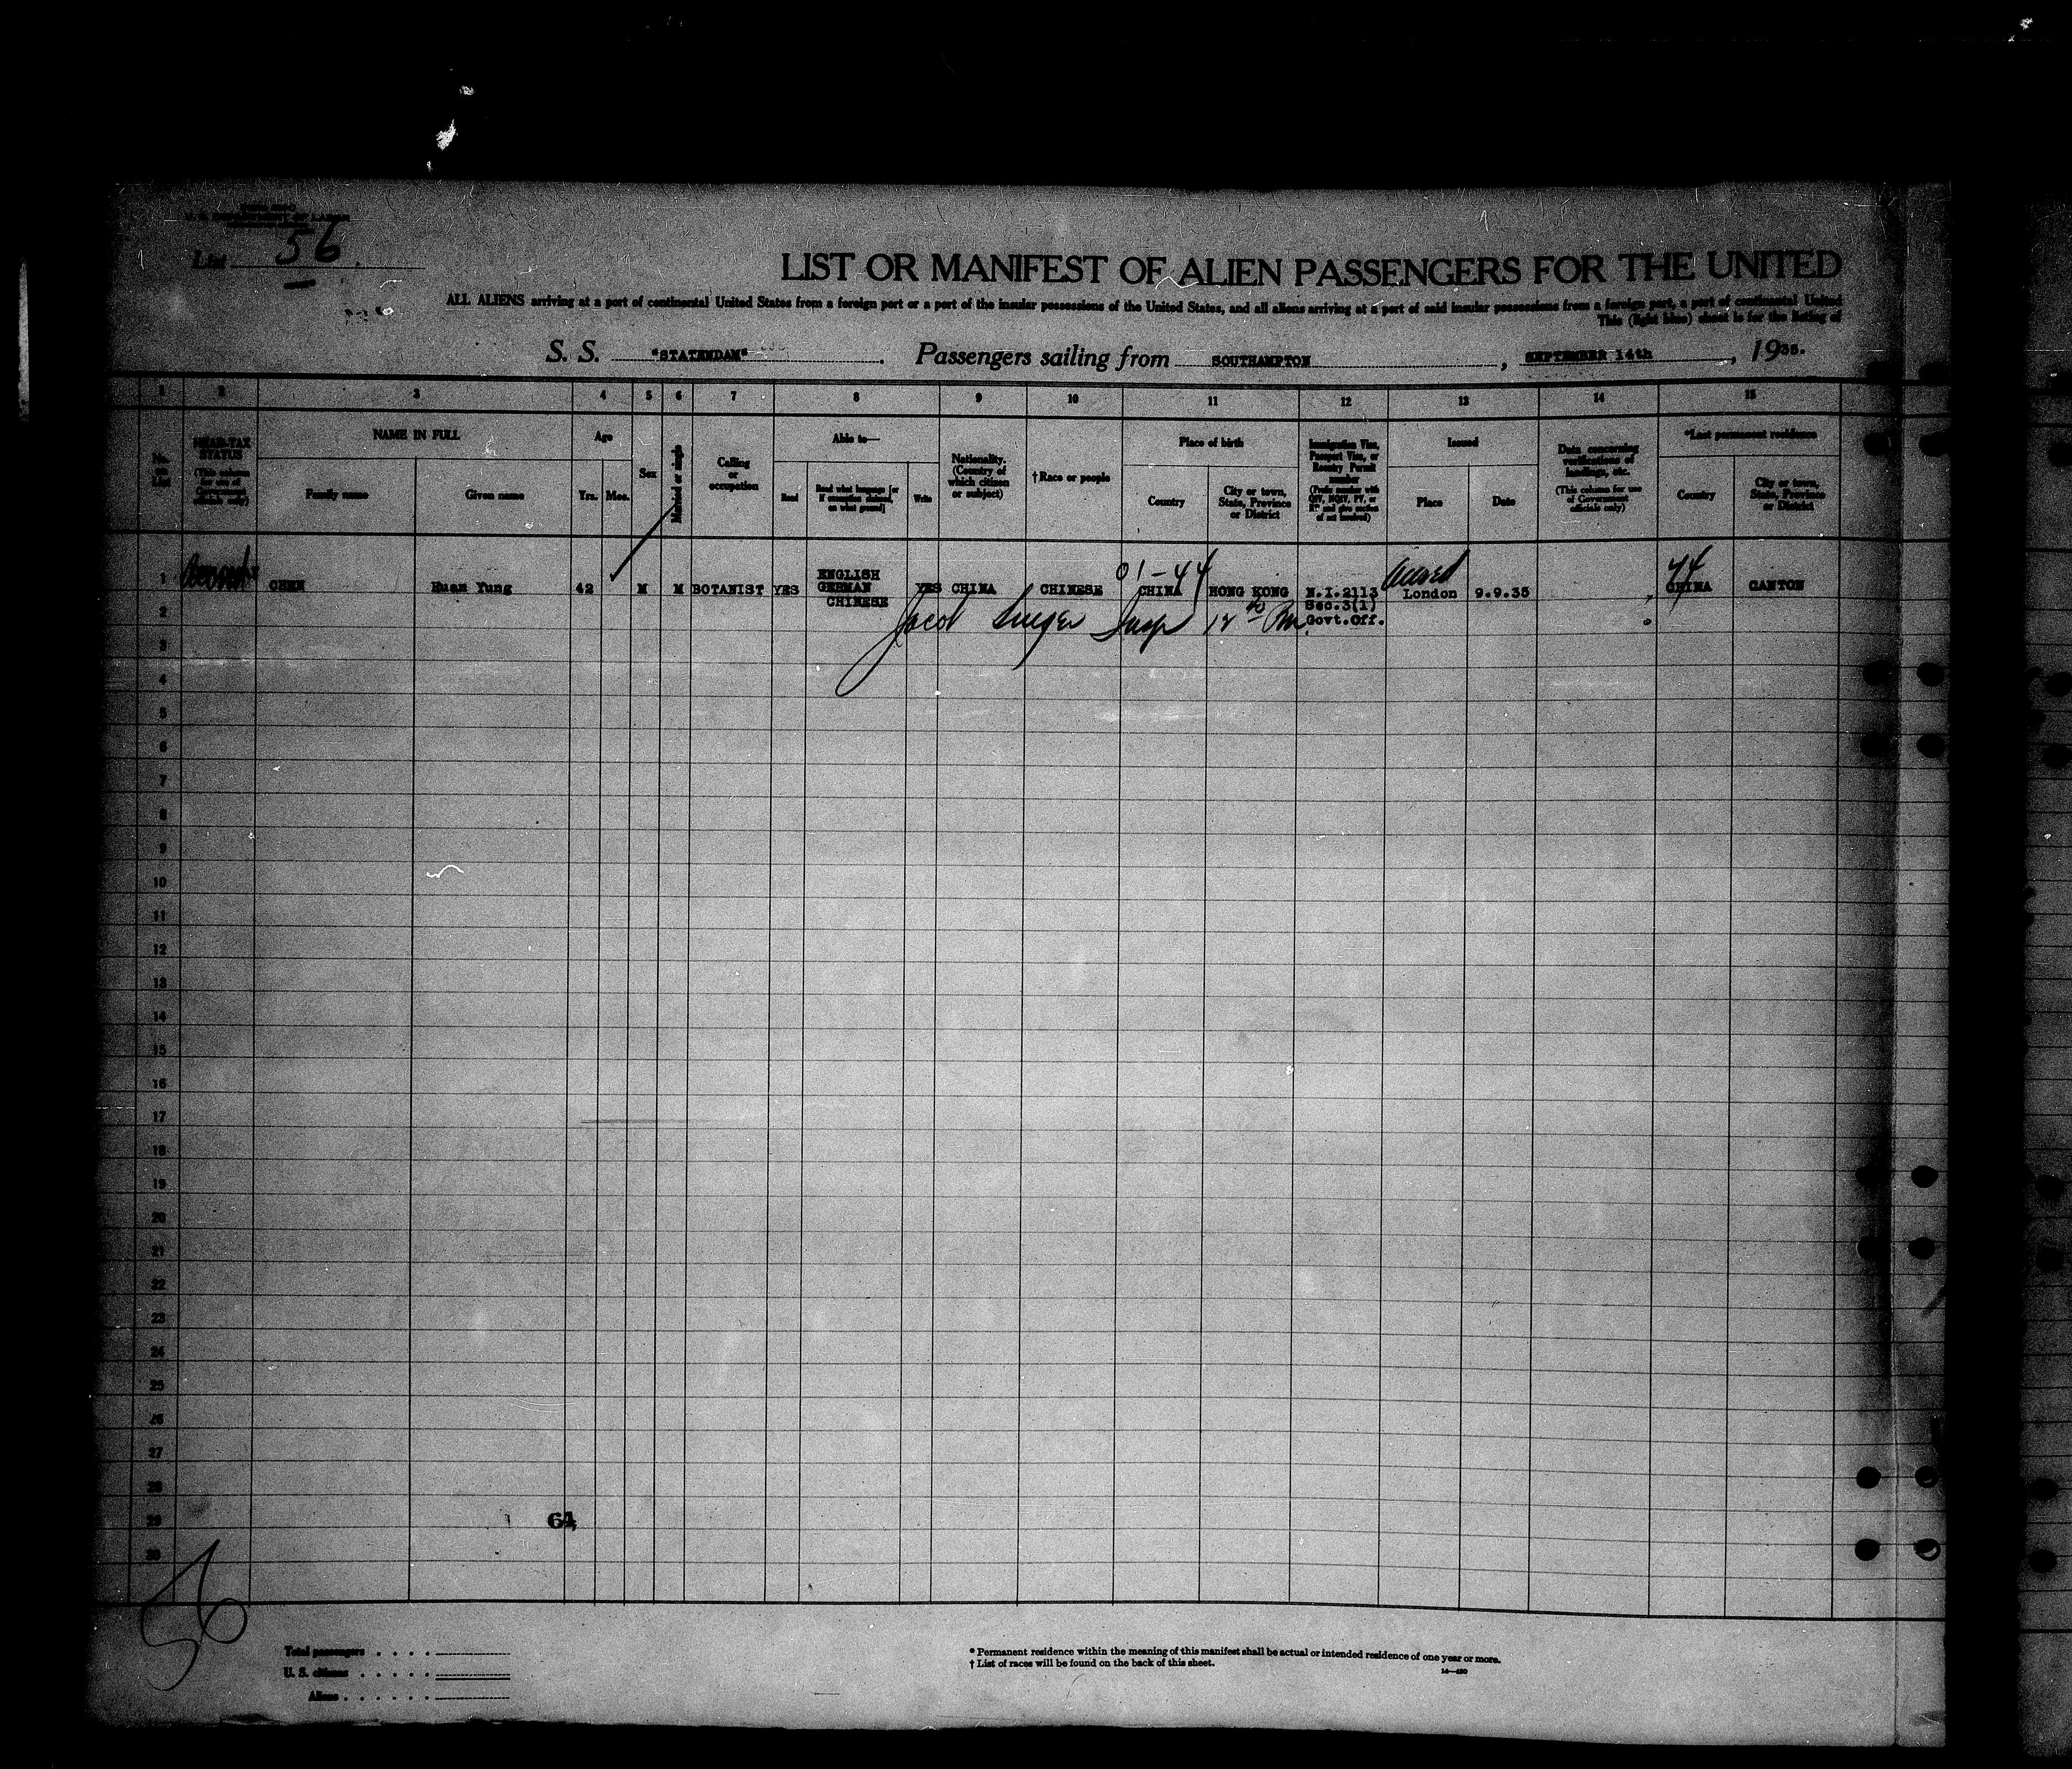 U. S. DEPARTMENT OF LABOR
List 56
LIST OR MANIFEST OF ALIEN PASSENGERS FOR THE UNITED
ALL ALIENS arriving at a port of continental United States from a foreign port or a port of the insular possessions of the United States, and all aliens arriving at a port of said insular possessions from a foreign port, a port of continental United
This (light blue) sheet is for the listing of
S. S. "STATENDAM". Passengers sailing from SOUTHAMPTON, SEPTEMBER 14th, 1935.
1 2 3 4 5 6 7 8 9 10 11 12 13 14 15
No. on List
HEAD-TAX STATUS (This column for use of Government officials only)
NAME IN FULL
Family name
Given name
Age
Yrs. Mos.
Sex
Married or single
Calling or occupation
Able to—
Read
Read what language [or if exemption claimed, on what ground]
Write
Nationality. (Country of which citizen or subject)
† Race or people
Place of birth
Country
City or town, State, Province or District
Immigration Visa, Passport Visa, or Reentry Permit number
(Prefix number with QIV, NQIV, PV, or RP and give section of act involved)
Issued
Place
Date
Data concerning verifications of landings, etc.
(This column for use of Government officials only)
*Last permanent residence
Country
City or town, State, Province or District
01-44
44
1 CHEN Huan Yung 42 M M BOTANIST YES ENGLISH GERMAN CHINESE YES CHINA CHINESE CHINA HONG KONG N.I.2113 Sec.3(1) Govt.Off. London 9.9.35 CHINA CANTON
2 Jacob Insp
3
4
5
6
7
8
9
10
11
12
13
14
15
16
17
18
19
20
21
22
23
24
25
26
27
28
29 64
30
56
Total passengers
U. S. citizens
Aliens
* Permanent residence within the meaning of this manifest shall be actual or intended residence of one year or more.
† List of races will be found on the back of this sheet.
14—480